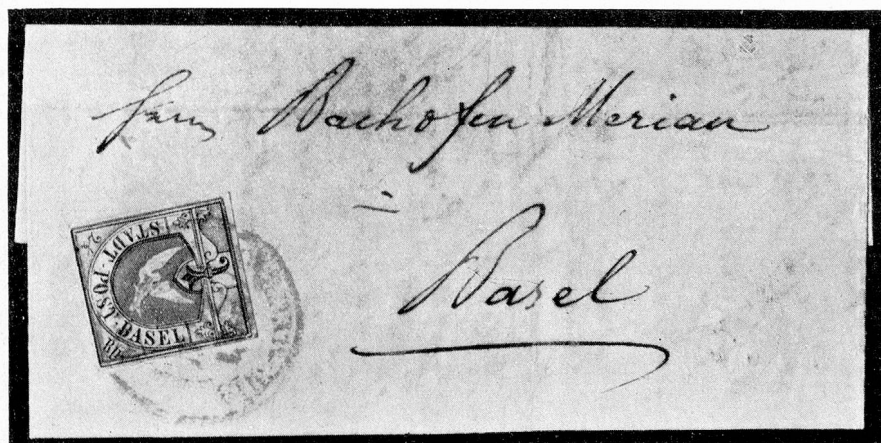 Herrn Bachofen Merian
in
Basel
STADT-POST-BASEL
2½ Rp.